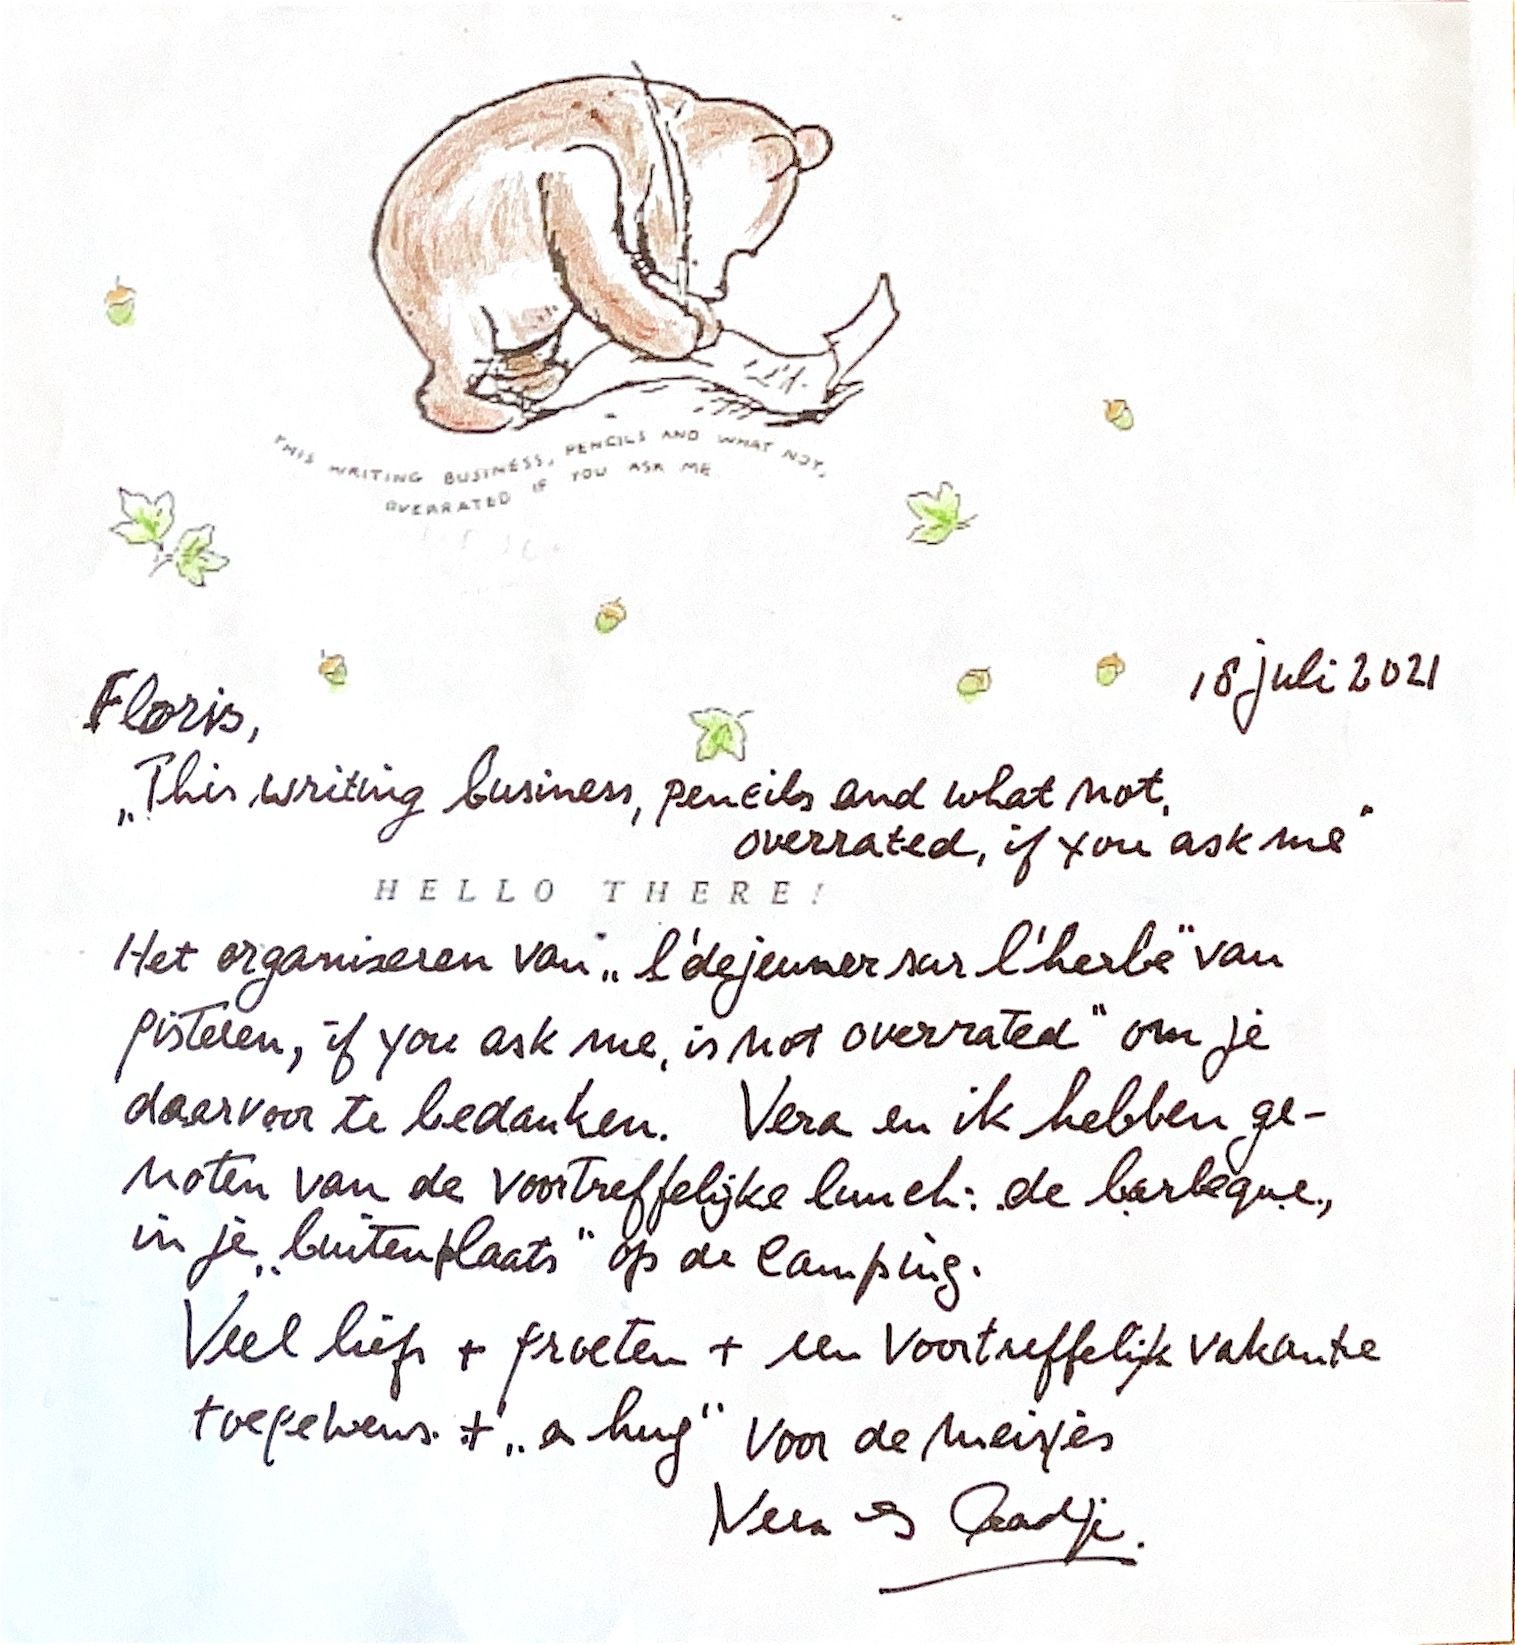 THIS WRITING BUSINESS, PENCILS AND WHAT NOT,
OVERRATED IF YOU ASK ME
18 juli 2021
Floris,
„This writing business, pencils and what not,
overrated, if you ask me"
HELLO THERE!
Het organiseren van „l'dejeuner sur l'herbe" van
gisteren, if you ask me, is not overrated" om je
daarvoor te bedanken. Vera en ik hebben ge-
noten van de voortreffelijke lunch: de barbeque,
in je „buitenplaats" op de camping.
Veel liefs + groeten + een voortreffelijk vakantie
toegewens. + „a hug" voor de meisjes
Vera &